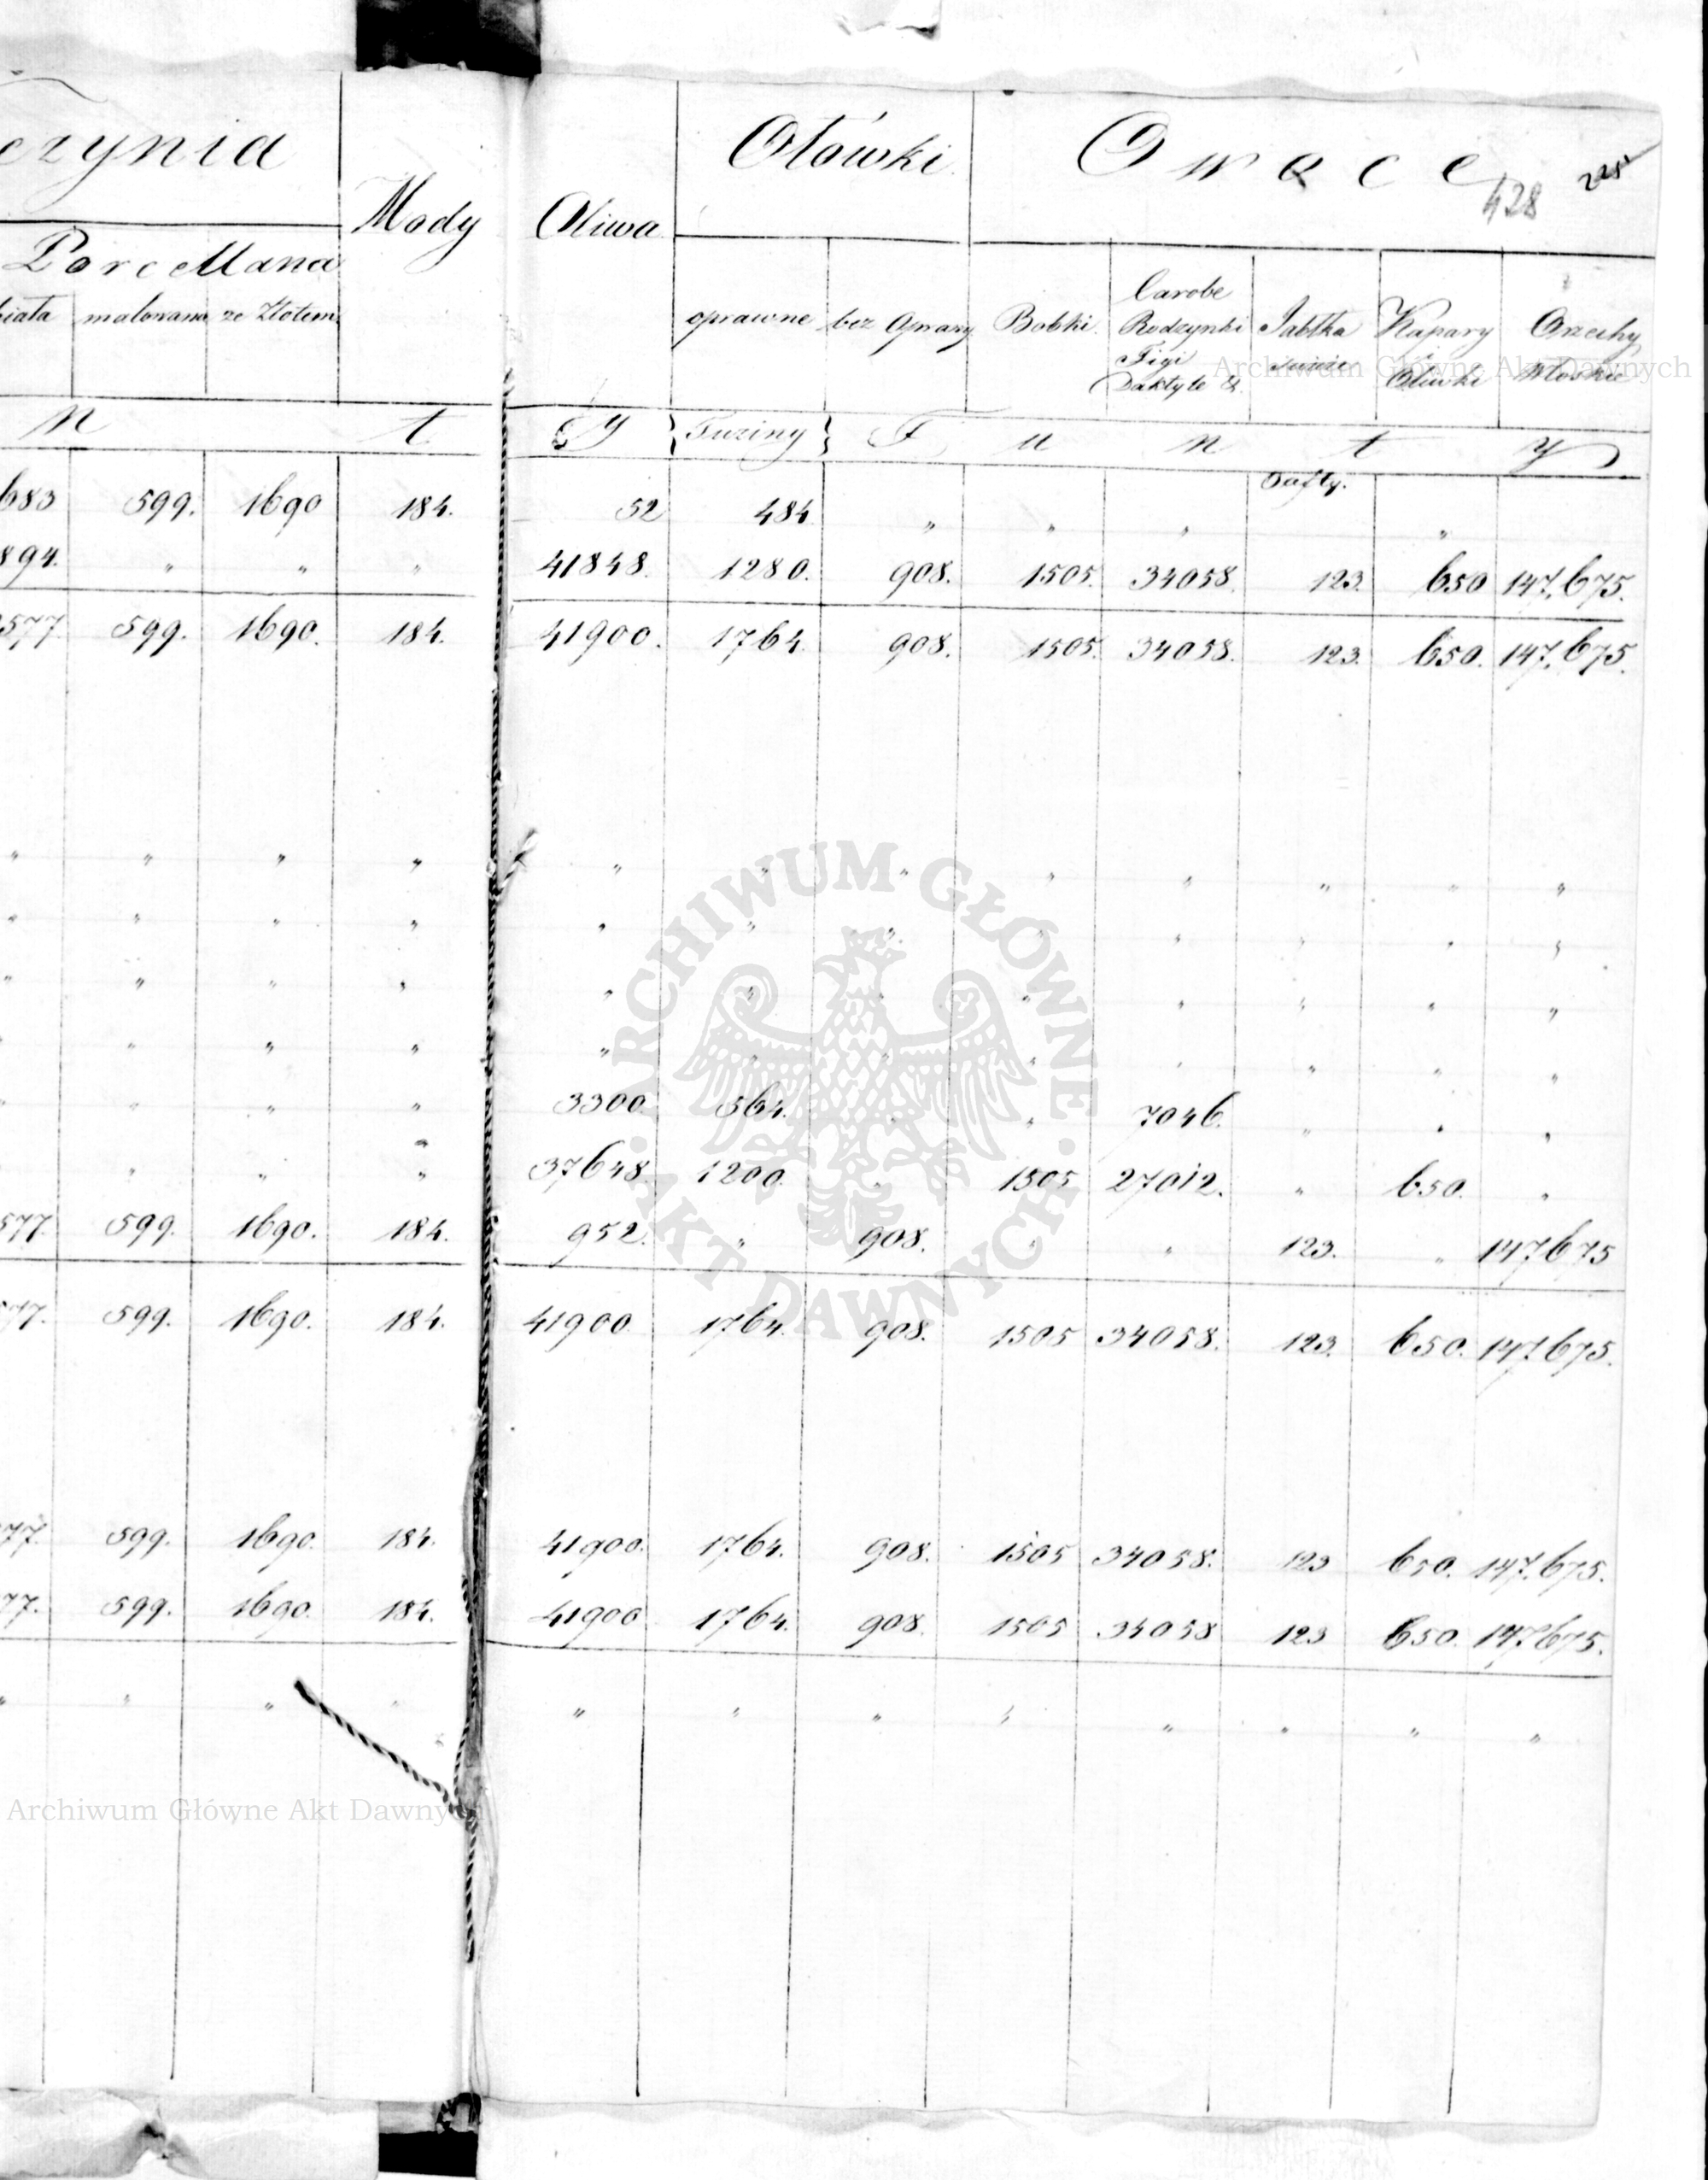 czynia Mody Oliwa Ołówki Owoce
428 228
Porcellana
biała malowana ze Złotem oprawne bez Oprawy Bobki Carobe Rodzynki Figi Daktyle & Jabłka świeże Kapary Oliwki Orzechy Włoskie
N T Y Tuziny F U N T Y
Safty.
683 599. 1690 184. 52 484 " " " "
894. " " " 41848. 1280. 908. 1505. 34058. 123. 650 147,675.
577 599. 1690. 184. 41900. 1764. 908. 1505. 34058. 123. 650. 147,675.
" " " " " " " " " " " "
" " " " " " " " " " " "
" " " " " " " " " " " "
" " " " " " " " " " " "
" " " " 3300 564. " " 7046. " " "
" " " 37648. 1200. " 1505 27012. " 650. "
577. 599. 1690. 184. 952. " 908. " " 123. " 147675
577. 599. 1690. 184. 41900 1764. 908. 1505 34058. 123. 650. 147,675.
77. 599. 1690 184. 41900. 1764. 908. 1505 34058. 123 650. 147.675.
77. 599. 1690. 184. 41900 1764. 908. 1505 34058 123 650. 147675.
" " " " " " " " " " " "
Archiwum Główne Akt Dawnych
ARCHIWUM GŁÓWNE · AKT DAWNYCH ·
Archiwum Główne Akt Dawnych